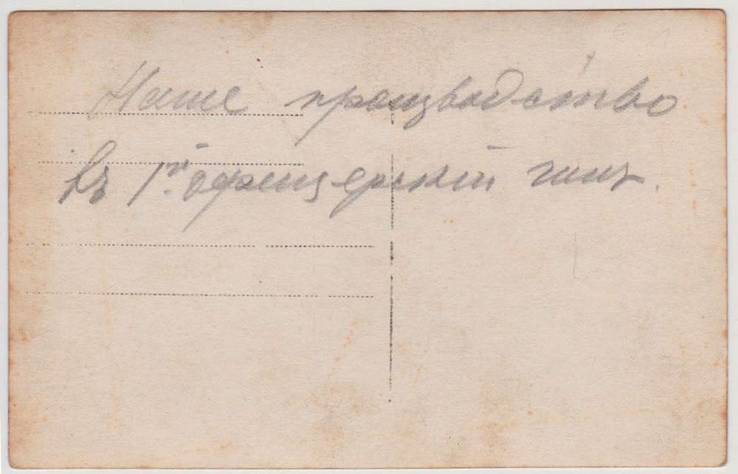 Наше производство
въ 1й офицерскій чинъ.